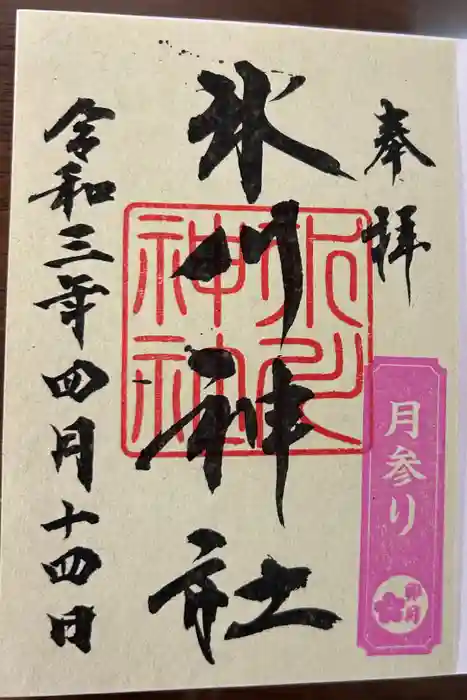 奉拝
月参り
卯月
氷川神社
氷川神社
令和三年四月十四日